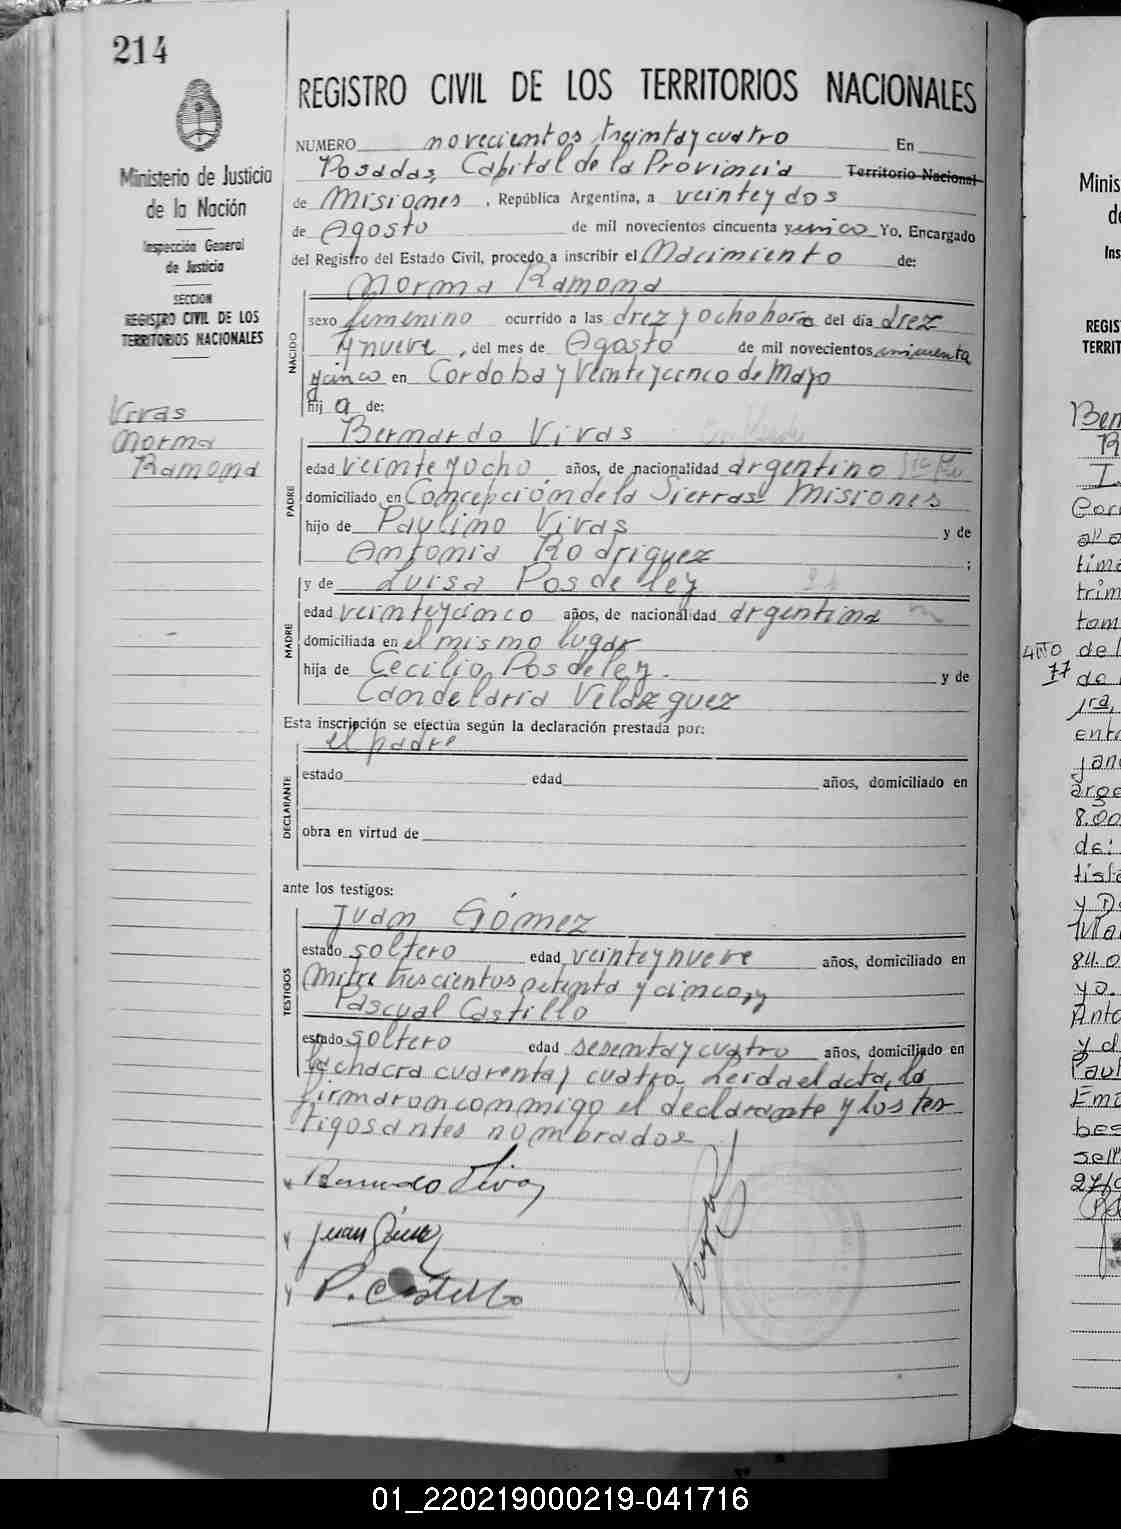 214
Ministerio de Justicia
de la Nación
Inspección General
de Justicia
SECCION
REGISTRO CIVIL DE LOS
TERRITORIOS NACIONALES
Vivas
Norma
Ramona
REGISTRO CIVIL DE LOS TERRITORIOS NACIONALES
NUMERO novecientos treinta y cuatro En
Posadas, Capital de la Provincia Territorio Nacional
de Misiones, República Argentina, a veinte y dos
de Agosto de mil novecientos cincuenta y cinco Yo, Encargado
del Registro del Estado Civil, procedo a inscribir el Nacimiento de:
NACIDO
Norma Ramona
sexo femenino ocurrido a las diez y ocho horas del día diez
y nueve, del mes de Agosto de mil novecientos cincuenta
y cinco en Córdoba y Veinte y cinco de Mayo
hij a de:
PADRE
Bernardo Vivas
edad veinte y ocho años, de nacionalidad argentino
domiciliado en Concepción de la Sierras Misiones
hijo de Paulino Vivas y de
Antonia Rodriguez ;
MADRE
y de Luisa Posdeley
edad veinte y cinco años, de nacionalidad argentina
domiciliada en el mismo lugar
hija de Cecilio Posdeley. y de
Candelaria Velazquez
Esta inscripción se efectúa según la declaración prestada por:
el padre
DECLARANTE
estado edad años, domiciliado en
obra en virtud de
ante los testigos:
TESTIGOS
Juan Gómez
estado soltero edad veinte y nueve años, domiciliado en
Mitre trescientos setenta y cinco, y
Pascual Castillo
estado soltero edad sesenta y cuatro años, domiciliado en
la chacra cuarenta y cuatro. Leida el acta, la
firmaron conmigo el declarante y los tes-
tigos antes nombrados
Bernardo Vivas
Juan Gómez
P. Castillo
Minis
de
Ins
REGIS
TERRIT
AÑO
77
01_220219000219-041716